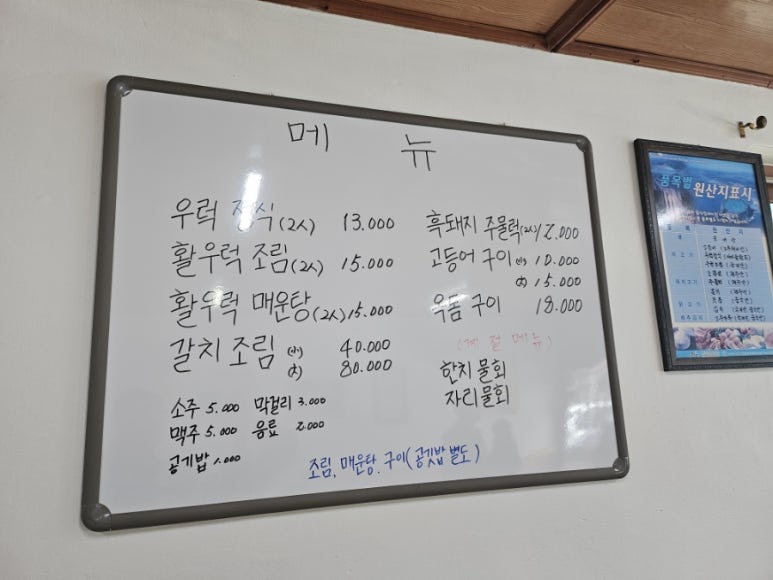 메 뉴
우럭 정식(2人) 13.000
활우럭 조림(2人) 15.000
활우럭 매운탕(2人) 15.000
갈치 조림 (小) 40.000
(大) 80.000
소주 5.000 막걸리 3.000
맥주 5.000 음료 2.000
공기밥 1.000
흑돼지 주물럭(2人) 12.000
고등어 구이 (小) 10.000
(大) 15.000
옥돔 구이 18.000
(계절 메뉴)
한치 물회
자리 물회
조림, 매운탕, 구이(공깃밥 별도)
품목별 원산지표시